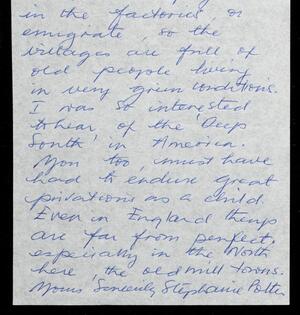 in the factories, or
emigrate, so the
villages are full of
old people living
in very grim conditions.
I was so interested
to hear of the 'Deep
South' in America.
You too, must have
had to endure great
privations as a child.
Even in England things
are far from perfect,
especially in the North
here, the old mill towns.
Yours Sincerely Stephanie Potter